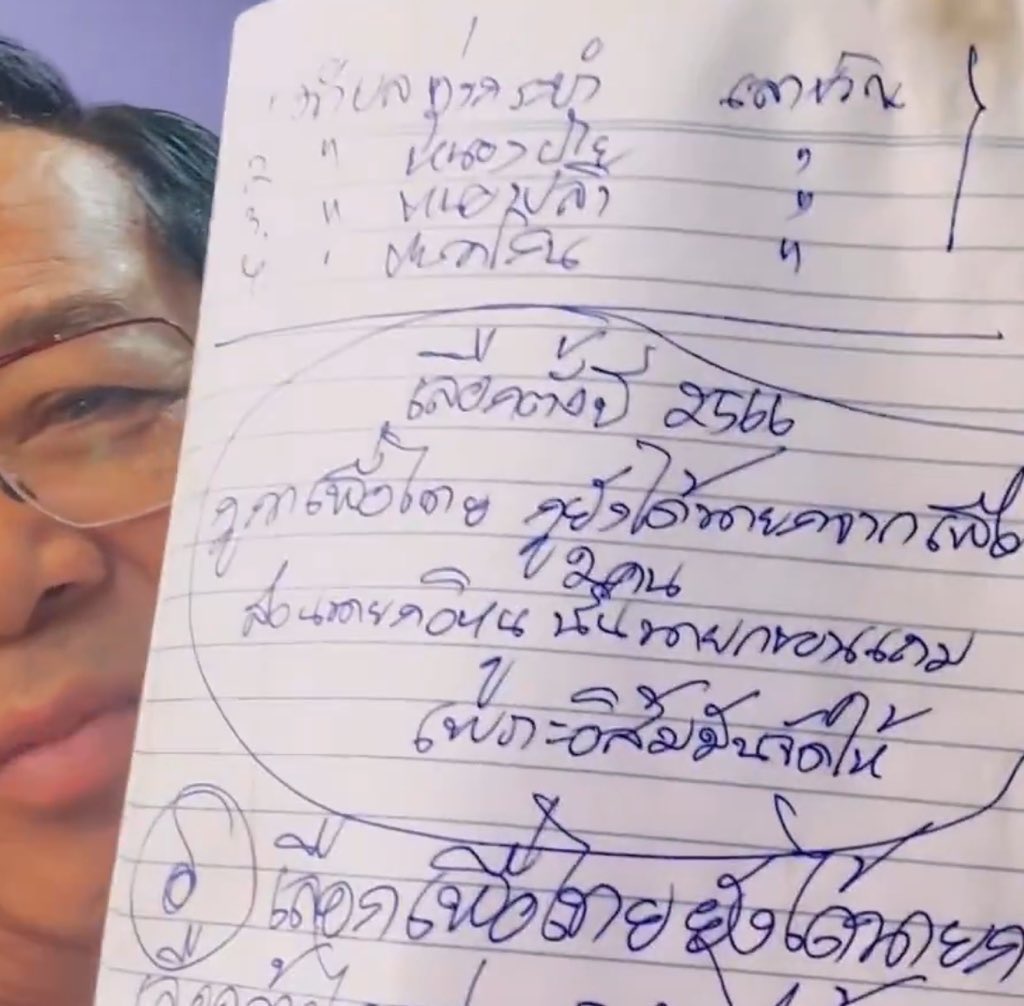 ตำบลทุ่งกระบ่ำ เลาขวัญ
2 " หนองฝ้าย "
3. " หนองปลิง "
4 "  "
เลือกตั้งปี 2566
กูกาเพื่อไทย กูยังได้นายกจากเพื่อไ
2 คน
ส่วนนายกอีหนู นั้นนายกของแถม
เพราะอีส้มมันจัดให้
เลือกเพื่อไทยยังได้นายก